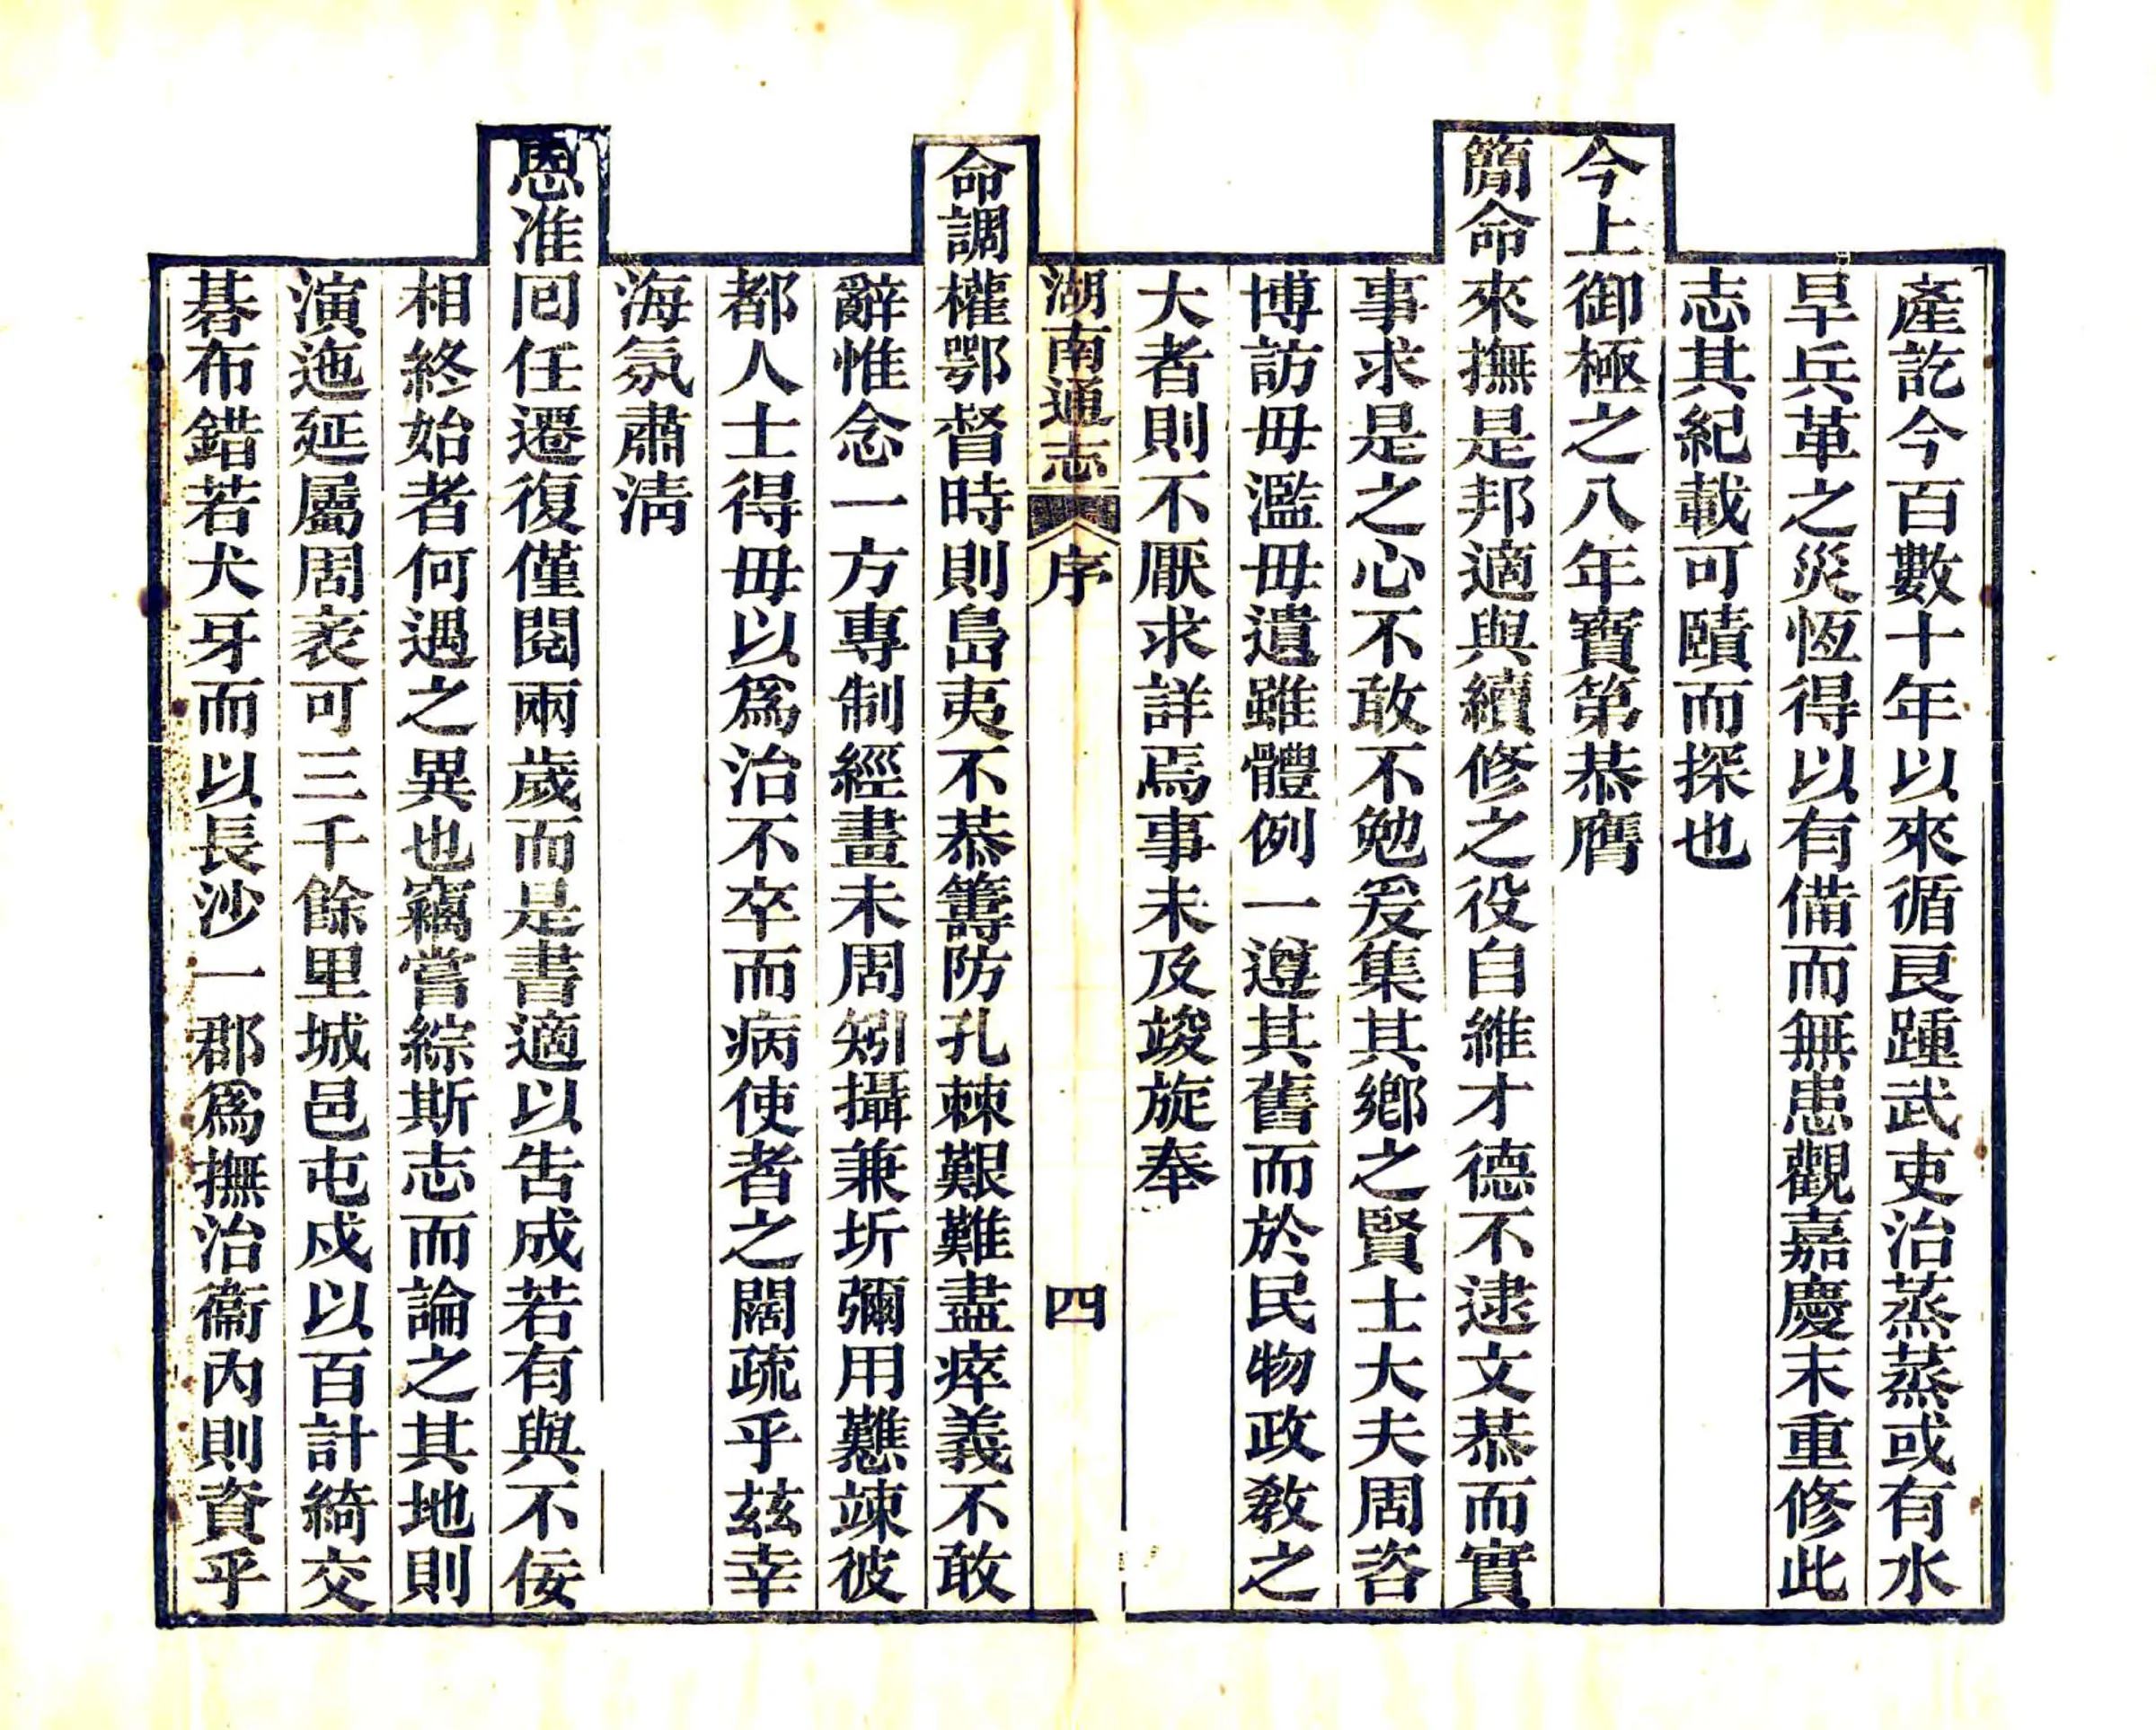 產訖今百數十年以來循良踵武吏治蒸蒸或有水
旱兵革之災恆得以有備而無患觀嘉慶末重修此
志其紀載可賾而探也
今上御極之八年寶第恭膺
簡命來撫是邦適與續修之役自維才德不逮文恭而實
事求是之心不敢不勉爰集其鄉之賢士大夫周咨
博訪毋濫毋遺雖體例一遵其舊而於民物政教之
大者則不厭求詳焉事未及竣旋奉
湖南通志 序 四
命調權鄂督時則島夷不恭籌防孔棘艱難盡瘁義不敢
辭惟念一方專制經畫未周矧攝兼圻彌用戁竦彼
都人士得毋以為治不卒而病使者之闊疏乎茲幸
海氛肅淸
恩准囘任遷復僅閱兩歲而是書適以告成若有與不佞
相終始者何遇之異也竊嘗綜斯志而論之其地則
演迤延屬周袤可三千餘里城邑屯戍以百計綺交
碁布錯若犬牙而以長沙一郡為撫治衞內則資乎